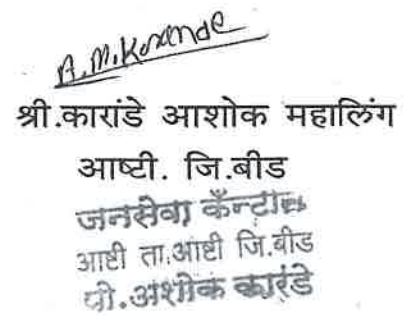 A.M.Karande
श्री.कारांडे आशोक महालिंग
आष्टी. जि.बीड
जनसेवा कॅन्टीन
आष्टी ता.आष्टी जि.बीड
प्रो.अशोक कारंडे